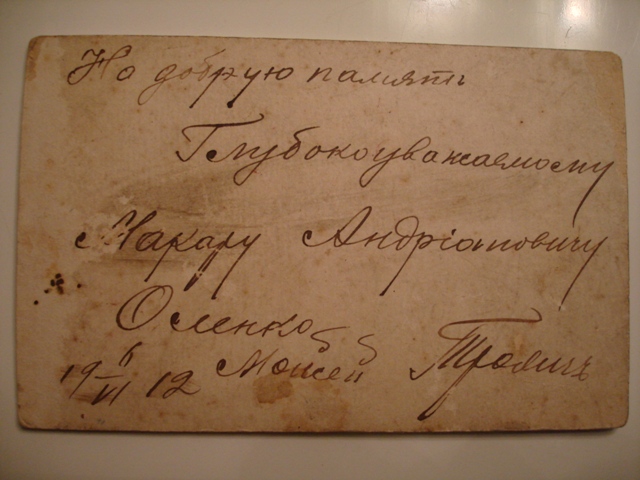 На добрую память
Глубокоуважаемому
Макару Андріановичу
Оленко
19 6/VI 12 Моисей